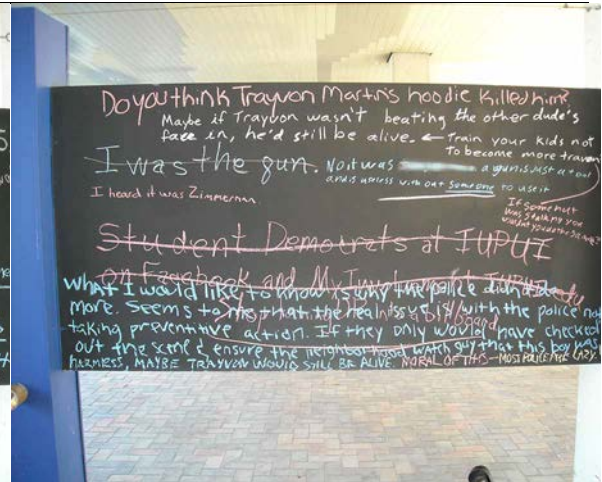 Do you think Trayvon Martin's hoodie killed him?
Maybe if Trayvon wasn't beating the other dude's
face in, he'd still be alive. ← Train your kids not
To become more
I was the gun. No it was
a gun is just a tool
and is useless with out someone to use it
I heard it was Zimmerman
If some nut
was stalking you
Student Democrats at IUPUI
on Facebook and My
What I would like to know is why the police didn't do
more. Seems to me that the real issue is with the police not
taking preventive action. If they only would have checked
out the scene & ensure the neighborhood watch guy that this boy was
harmless, MAYBE TRAYVON WOULD STILL BE ALIVE. MORAL OF THIS--MOST POLICE ARE LAZY.